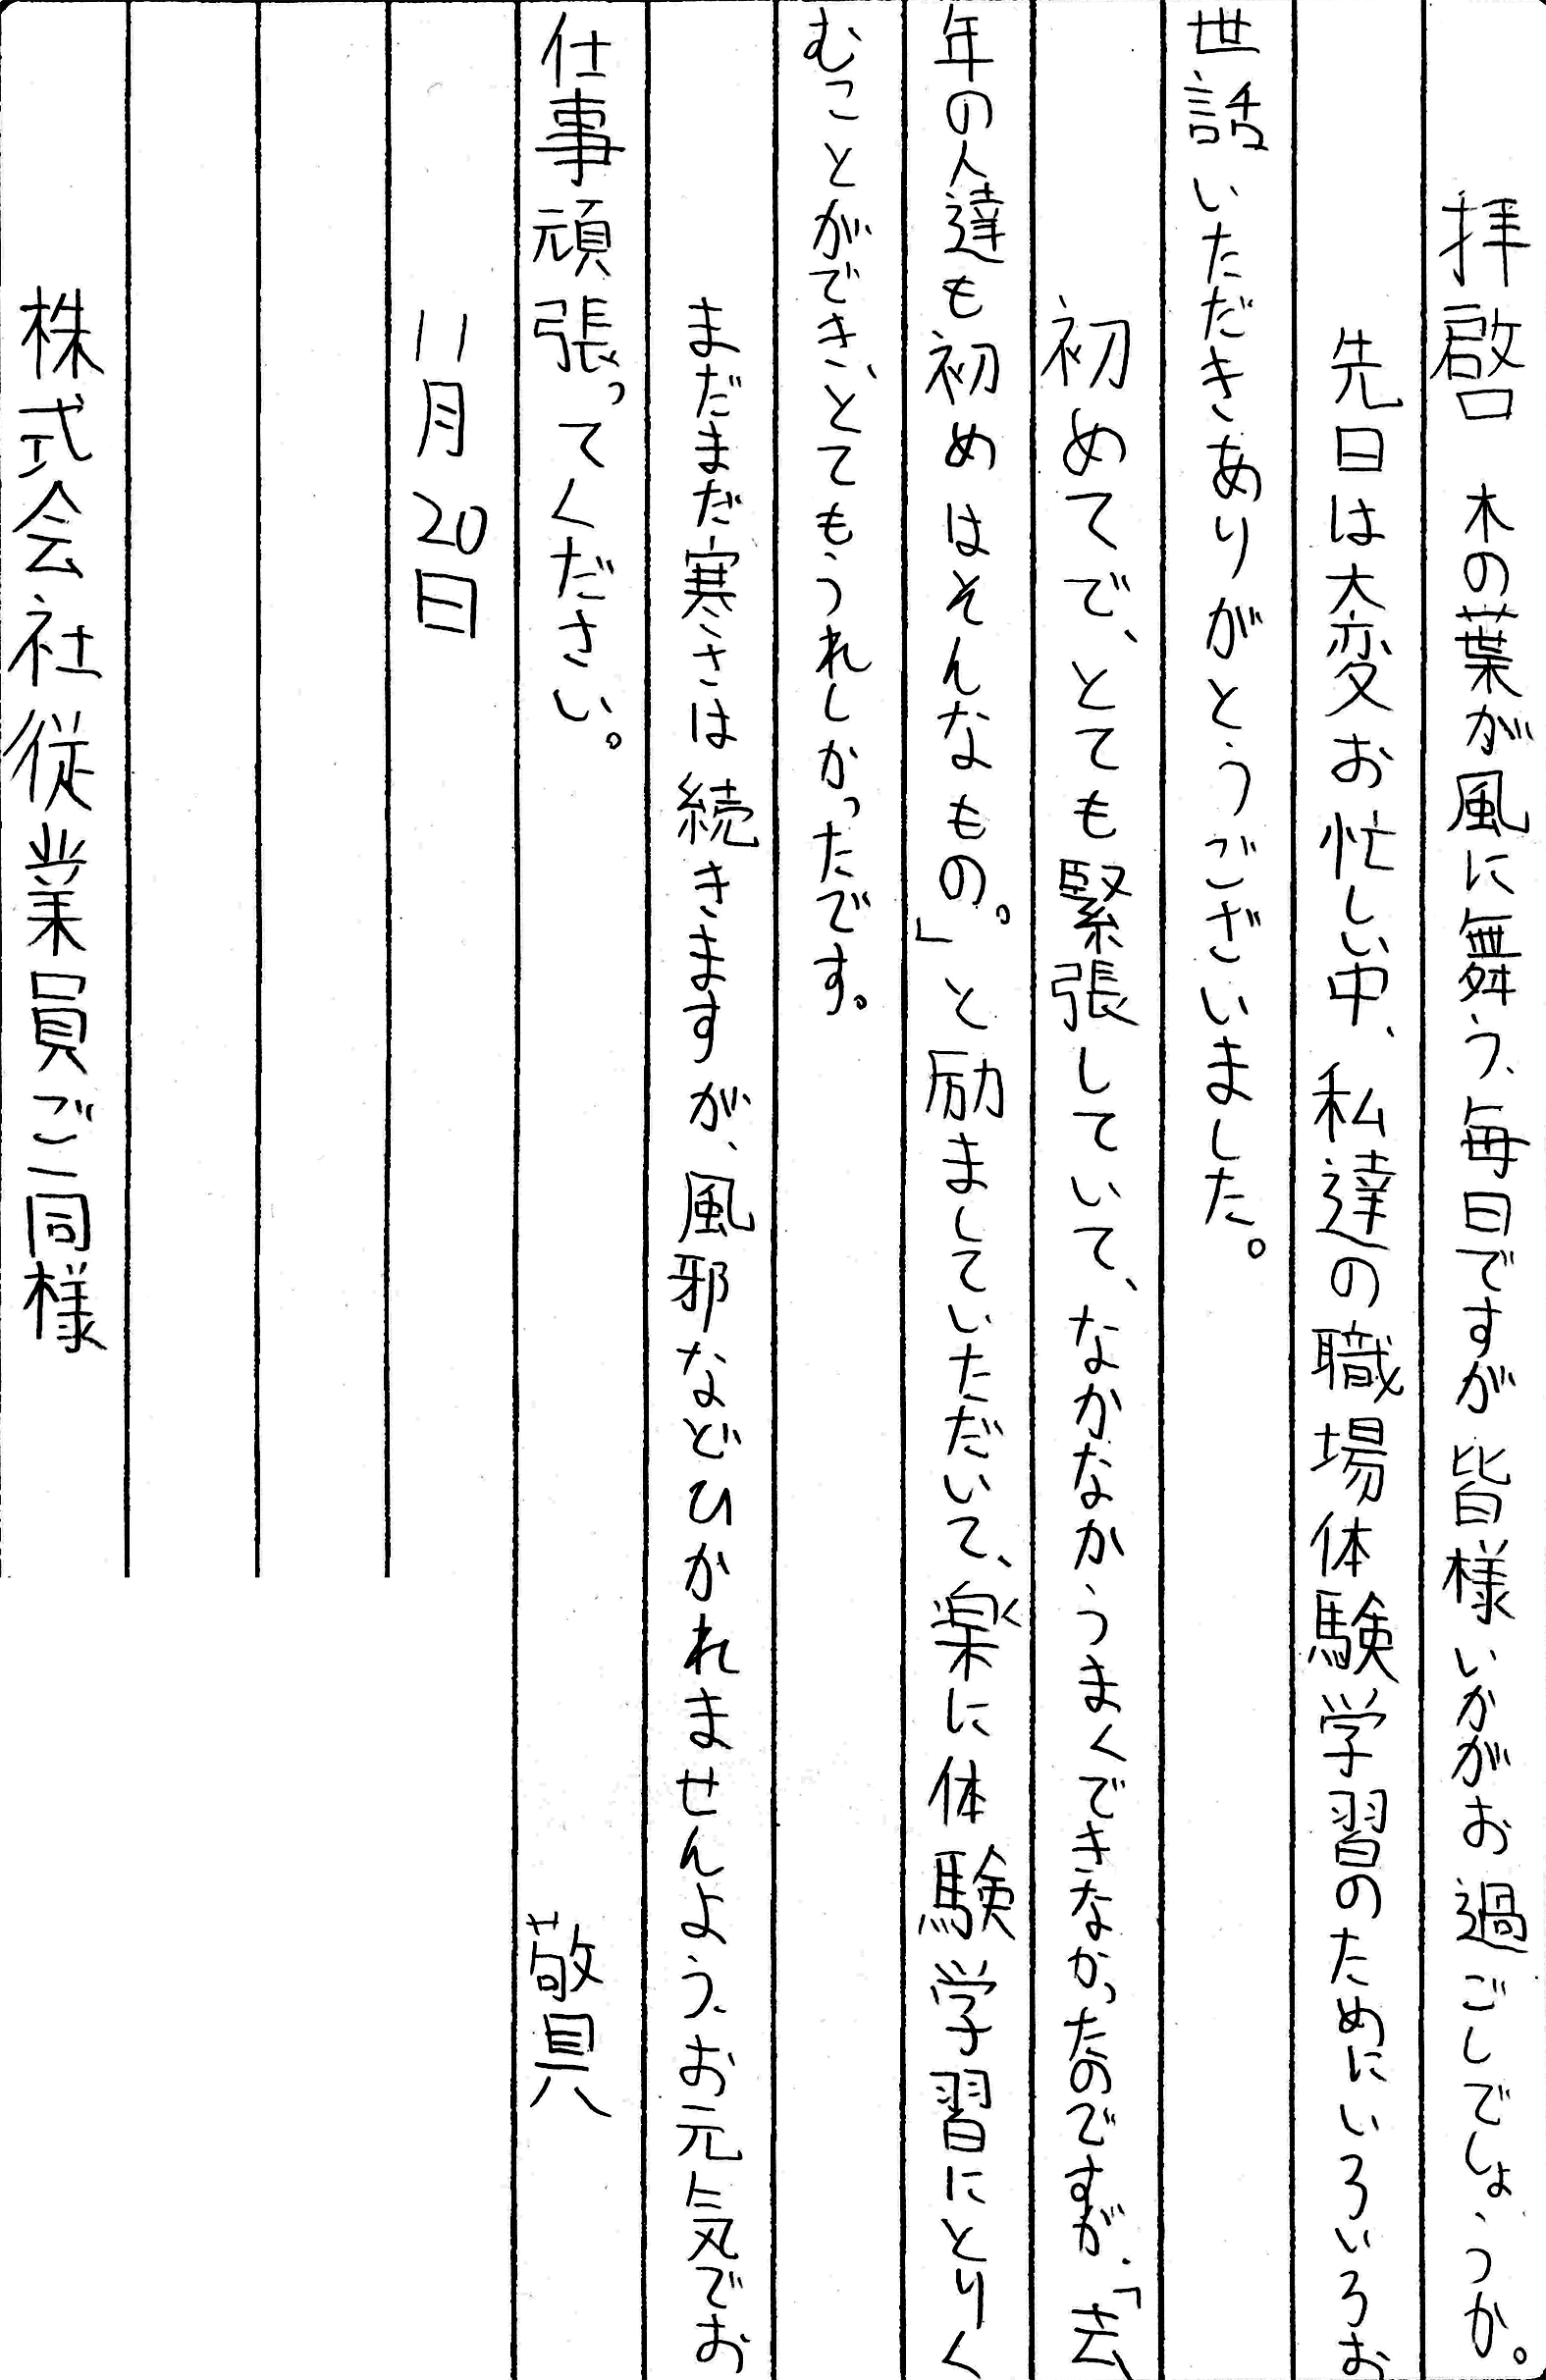 拝啓 木の葉が風に舞う、毎日ですが 皆様いかがお過ごしでしょうか。
先日は大変お忙しい中、私達の職場体験学習のためにいろいろお
世話いただきありがとうございました。
初めてで、とても緊張していて、なかなかうまくできなかったのですが、「去
年の人達も初めはそんなもの。」と励ましていただいて、楽に体験学習にとりく
むことができ、とてもうれしかったです。
まだまだ寒さは続きますが、風邪などひかれませんよう、お元気でお
仕事頑張ってください。 敬具
11月20日
株式会社従業員ご一同様